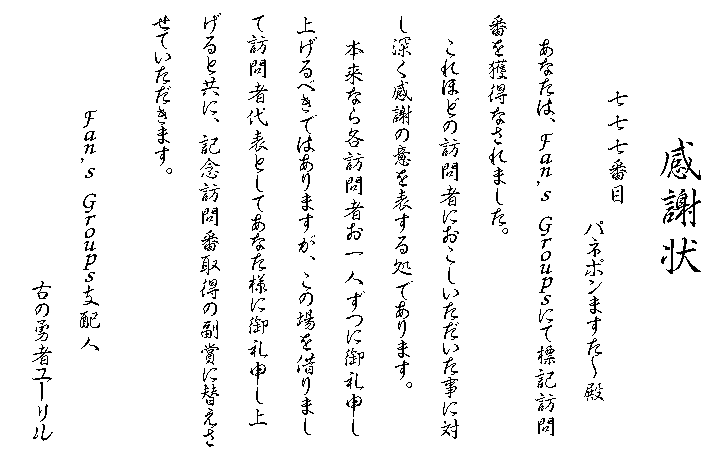 感謝状
七七七番目
パネポンますた~殿
あなたは、Fan's Groupsにて標記訪問
番を獲得なされました。
これほどの訪問者におこしいただいた事に対
し深く感謝の意を表する処であります。
本来なら各訪問者お一人ずつに御礼申し
上げるべきではありますが、この場を借りまし
て訪問者代表としてあなた様に御礼申し上
げると共に、記念訪問番取得の副賞に替えさ
せていただきます。
Fan's Groups支配人
古の勇者ユーリル